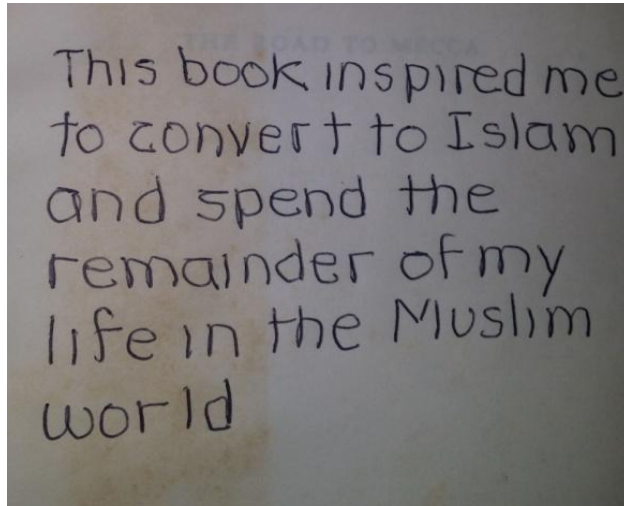 THE ROAD TO MECCA
This book inspired me
to convert to Islam
and spend the
remainder of my
life in the Muslim
world